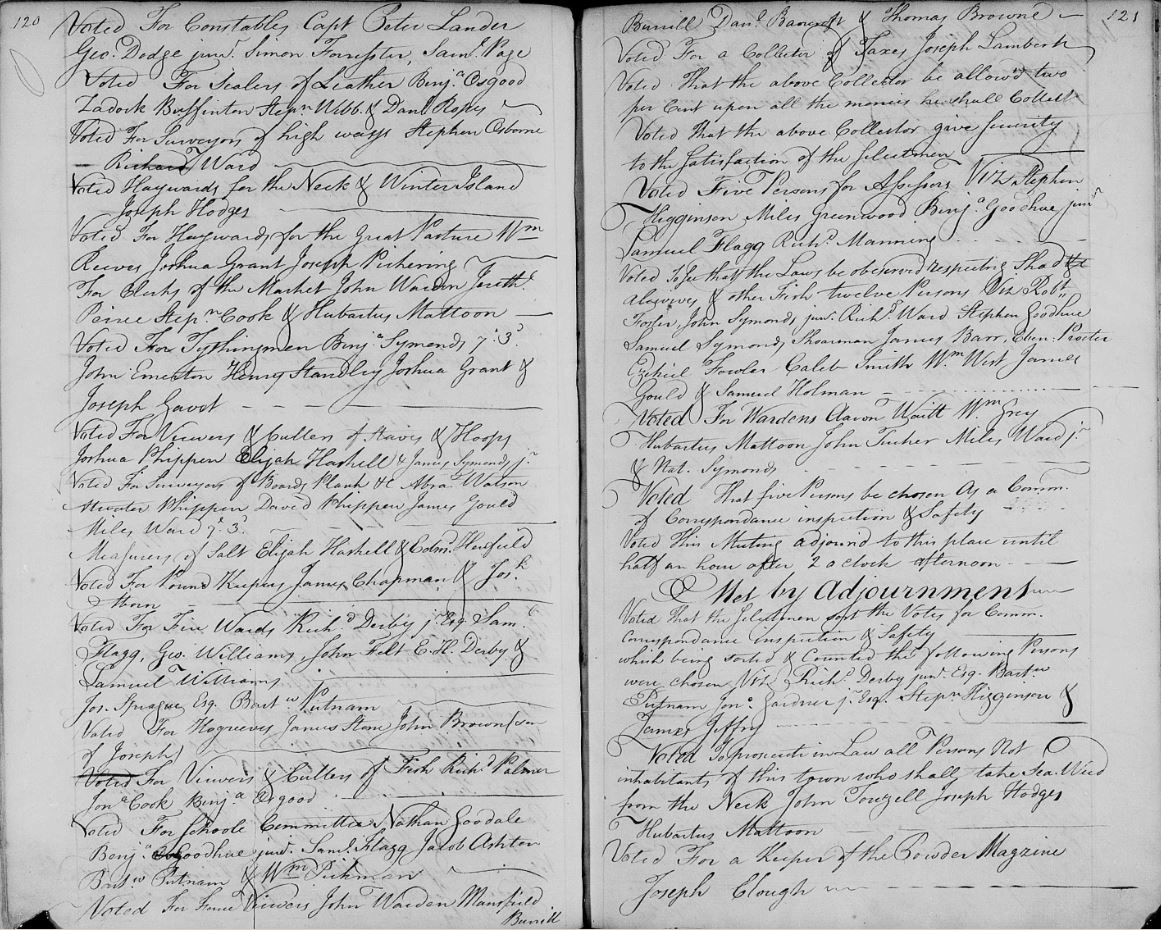 120
Voted For Constables Capt Peter Lander
Geo. Dodge junr. Simon Forrester, Saml. Page
Voted For Sealers of Leather Benja. Osgood
Zadock Buffinton Stepn. Webb & Danl. Ropes
Voted For Surveyors of high ways Stephen Osborne
Richard Ward
Voted Haywards for the Neck & Winter Island
Joseph Hodges
Voted For Haywards for the Great Pasture Wm
Reeves Joshua Grant Joseph Pickering
For Clerks of the Market John Warden Jerethl.
Peirce Stepn Cook & Hubartus Mattoon
Voted For Tythingmen Benja. Symonds ye. 3d.
John Emerton Henry Standley Joshua Grant &
Joseph Gavot
Voted For Viewers & Cullers of Staves & Hoops
Joshua Phippen Elijah Haskell & James Symonds jr.
Voted For Surveyors of Boards Plank &c Abra. Watson
Phippen David Phippen James Gould
Miles Ward ye. 3d.
Measurers of Salt Elijah Haskell & Edmd.
Voted For Pound Keepers James Chapman & Josh.
Horn
Voted For Fire Wards Richd Derby jr. Esq. Saml.
Flagg, Geo. Williams, John Felt E. H. Derby &
Samuel Williams
Jos. Sprague Esq. Bartw Putnam
Voted For Hogreeves James Stone John Brown Son
of Joseph
Voted For Viewers & Cullers of Fish Richd. Palmer
Jona. Cook Benja. Osgood
Voted For Schoole Committee Nathan Goodale
Benja. Goodhue junr. Saml. Flagg Jacob Ashton
Bartw Putnam & Wm Pickman
Voted For Fence Viewers John Warden Mansfield
Burrill
121
Burrill Danl. Bancroft & Thomas Browne
Voted For a Collector of Taxes Joseph Lambert
Voted That the above Collector be allowd two
per Cent upon all the monies he shall Collect
Voted That the above Collector give Security
to the Satisfaction of the Selectmen
Voted Five Persons for Assessors Viz. Stephen
Higginson Miles Greenwood Benja. Goodhue junr
Samuel Flagg Richd. Manning
Voted To See that the Laws be observed respecting Shad
alewives & other Fish twelve Persons Viz Robt.
Foster, John Symonds junr. Richd. Ward Stephen Goodhue
Samuel Symonds Shoarman James Barr, Eben. Procter
Ezekiel Fowler Caleb Smith Wm West James
Gould & Samuel Holman
Voted For Wardens Aaron Waitt Wm Grey
Hubartus Mattoon John Tucker Miles Ward jr.
& Nat. Symonds
Voted That five Persons be chosen As a Comm.
of Correspondance inspection & Safety
Voted This Meeting adjournd to this place untill
half an hour after 2 o clock afternoon
Met by Adjournment
Voted That the Selectmen sort the Votes for Comm.
Correspondance Inspection & Safety
which being sorted & Counted the following Persons
were chosen Viz. Richd. Derby junr. Esq. Bartw
Putnam Jona. Gardner jr. Esq. Stepn Higginson &
James Jeffry
Voted To prosecute in Law all Persons Not
inhabitants of this town who shall take Sea Weed
from the Neck John Touzell Joseph Hodges
Hubartus Mattoon
Voted For a Keeper of the Powder Magzine
Joseph Clough